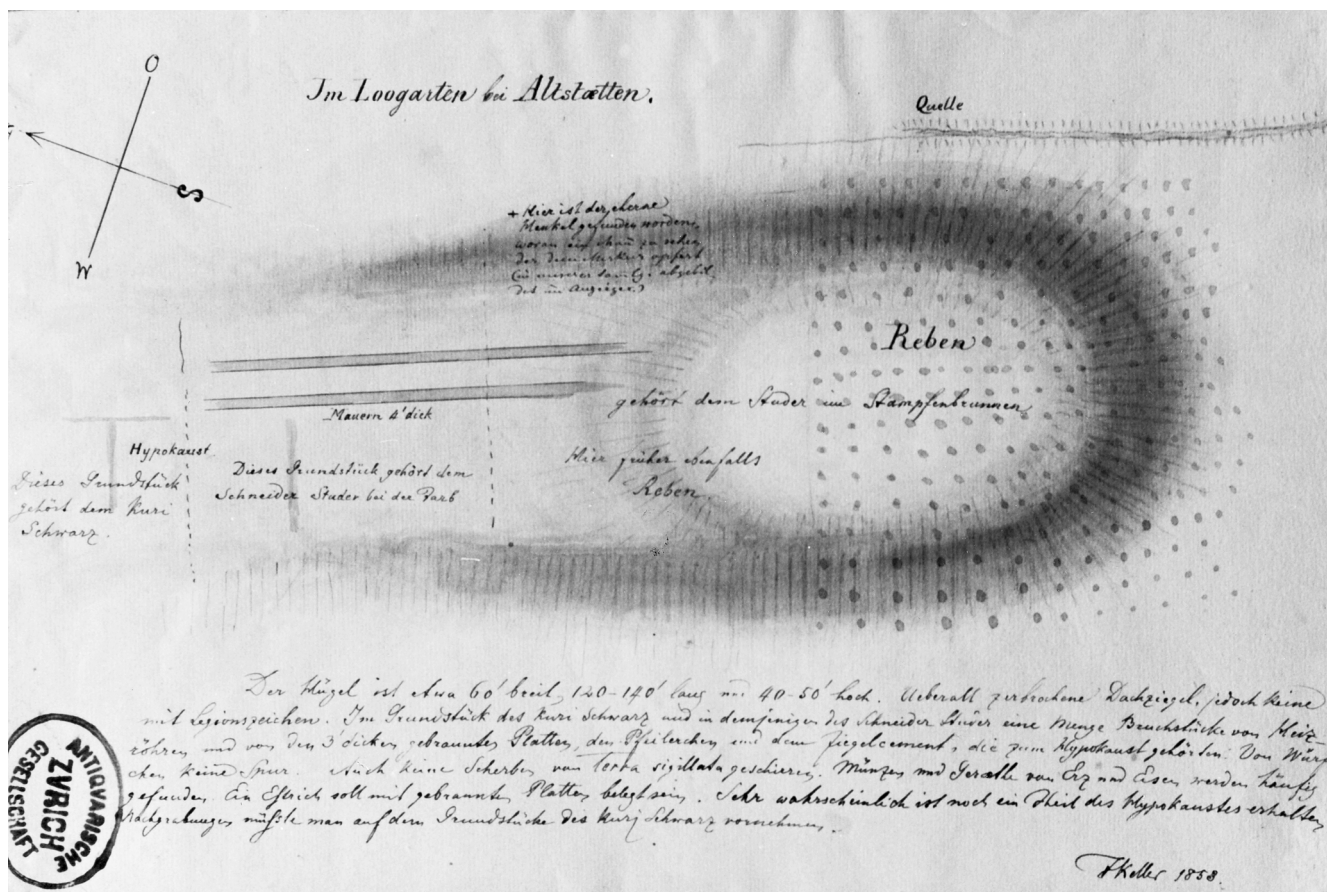 O
Im Loogarten bei Altstætten.
Quelle
S
W
+ Hier ist der eherne
Henkel gefunden worden,
woran ein Mann zu sehen
der dem Merkur opfert
(in unserer Samlg. abgebil-
det im Anzeiger.)
Reben
gehört dem Studer im Stampfenbrunnen
Mauern 4' dick
Hier früher ebenfalls
Reben.
Hypokaust
Dieses Grundstück
gehört dem Kuri
Schwarz.
Dieses Grundstück gehört dem
Schneider Studer bei der Farb
Der Hügel ist etwa 60' breit, 120-140' lang und 40-50' hoch. Ueberall zerbrochene Dachziegel, jedoch keine
mit Legionszeichen. Im Grundstück des Kuri Schwarz und in demjenigen des Schneider Studer eine Menge Bruchstücke von Heiz-
röhren und von den 3' dicken gebrannten Platten, den Pfeilerchen und dem Ziegelcement, die zum Hypokaust gehörten. Von
chen keine Spur. Auch keine Scherben von terra sigillata geschirren. Münzen und Geræthe von Erz und Eisen werden häufig
gefunden. Ein Estrich soll mit gebrannten Platten belegt sein. Sehr wahrscheinlich ist noch ein Theil des Hypokaustes erhalten,
Nachgrabungen müsste man auf dem Grundstücke des Kuri Schwarz vornehmen.
FKeller 1858.
ANTIQUARISCHE
ZVRICH
GESELLSCHAFT